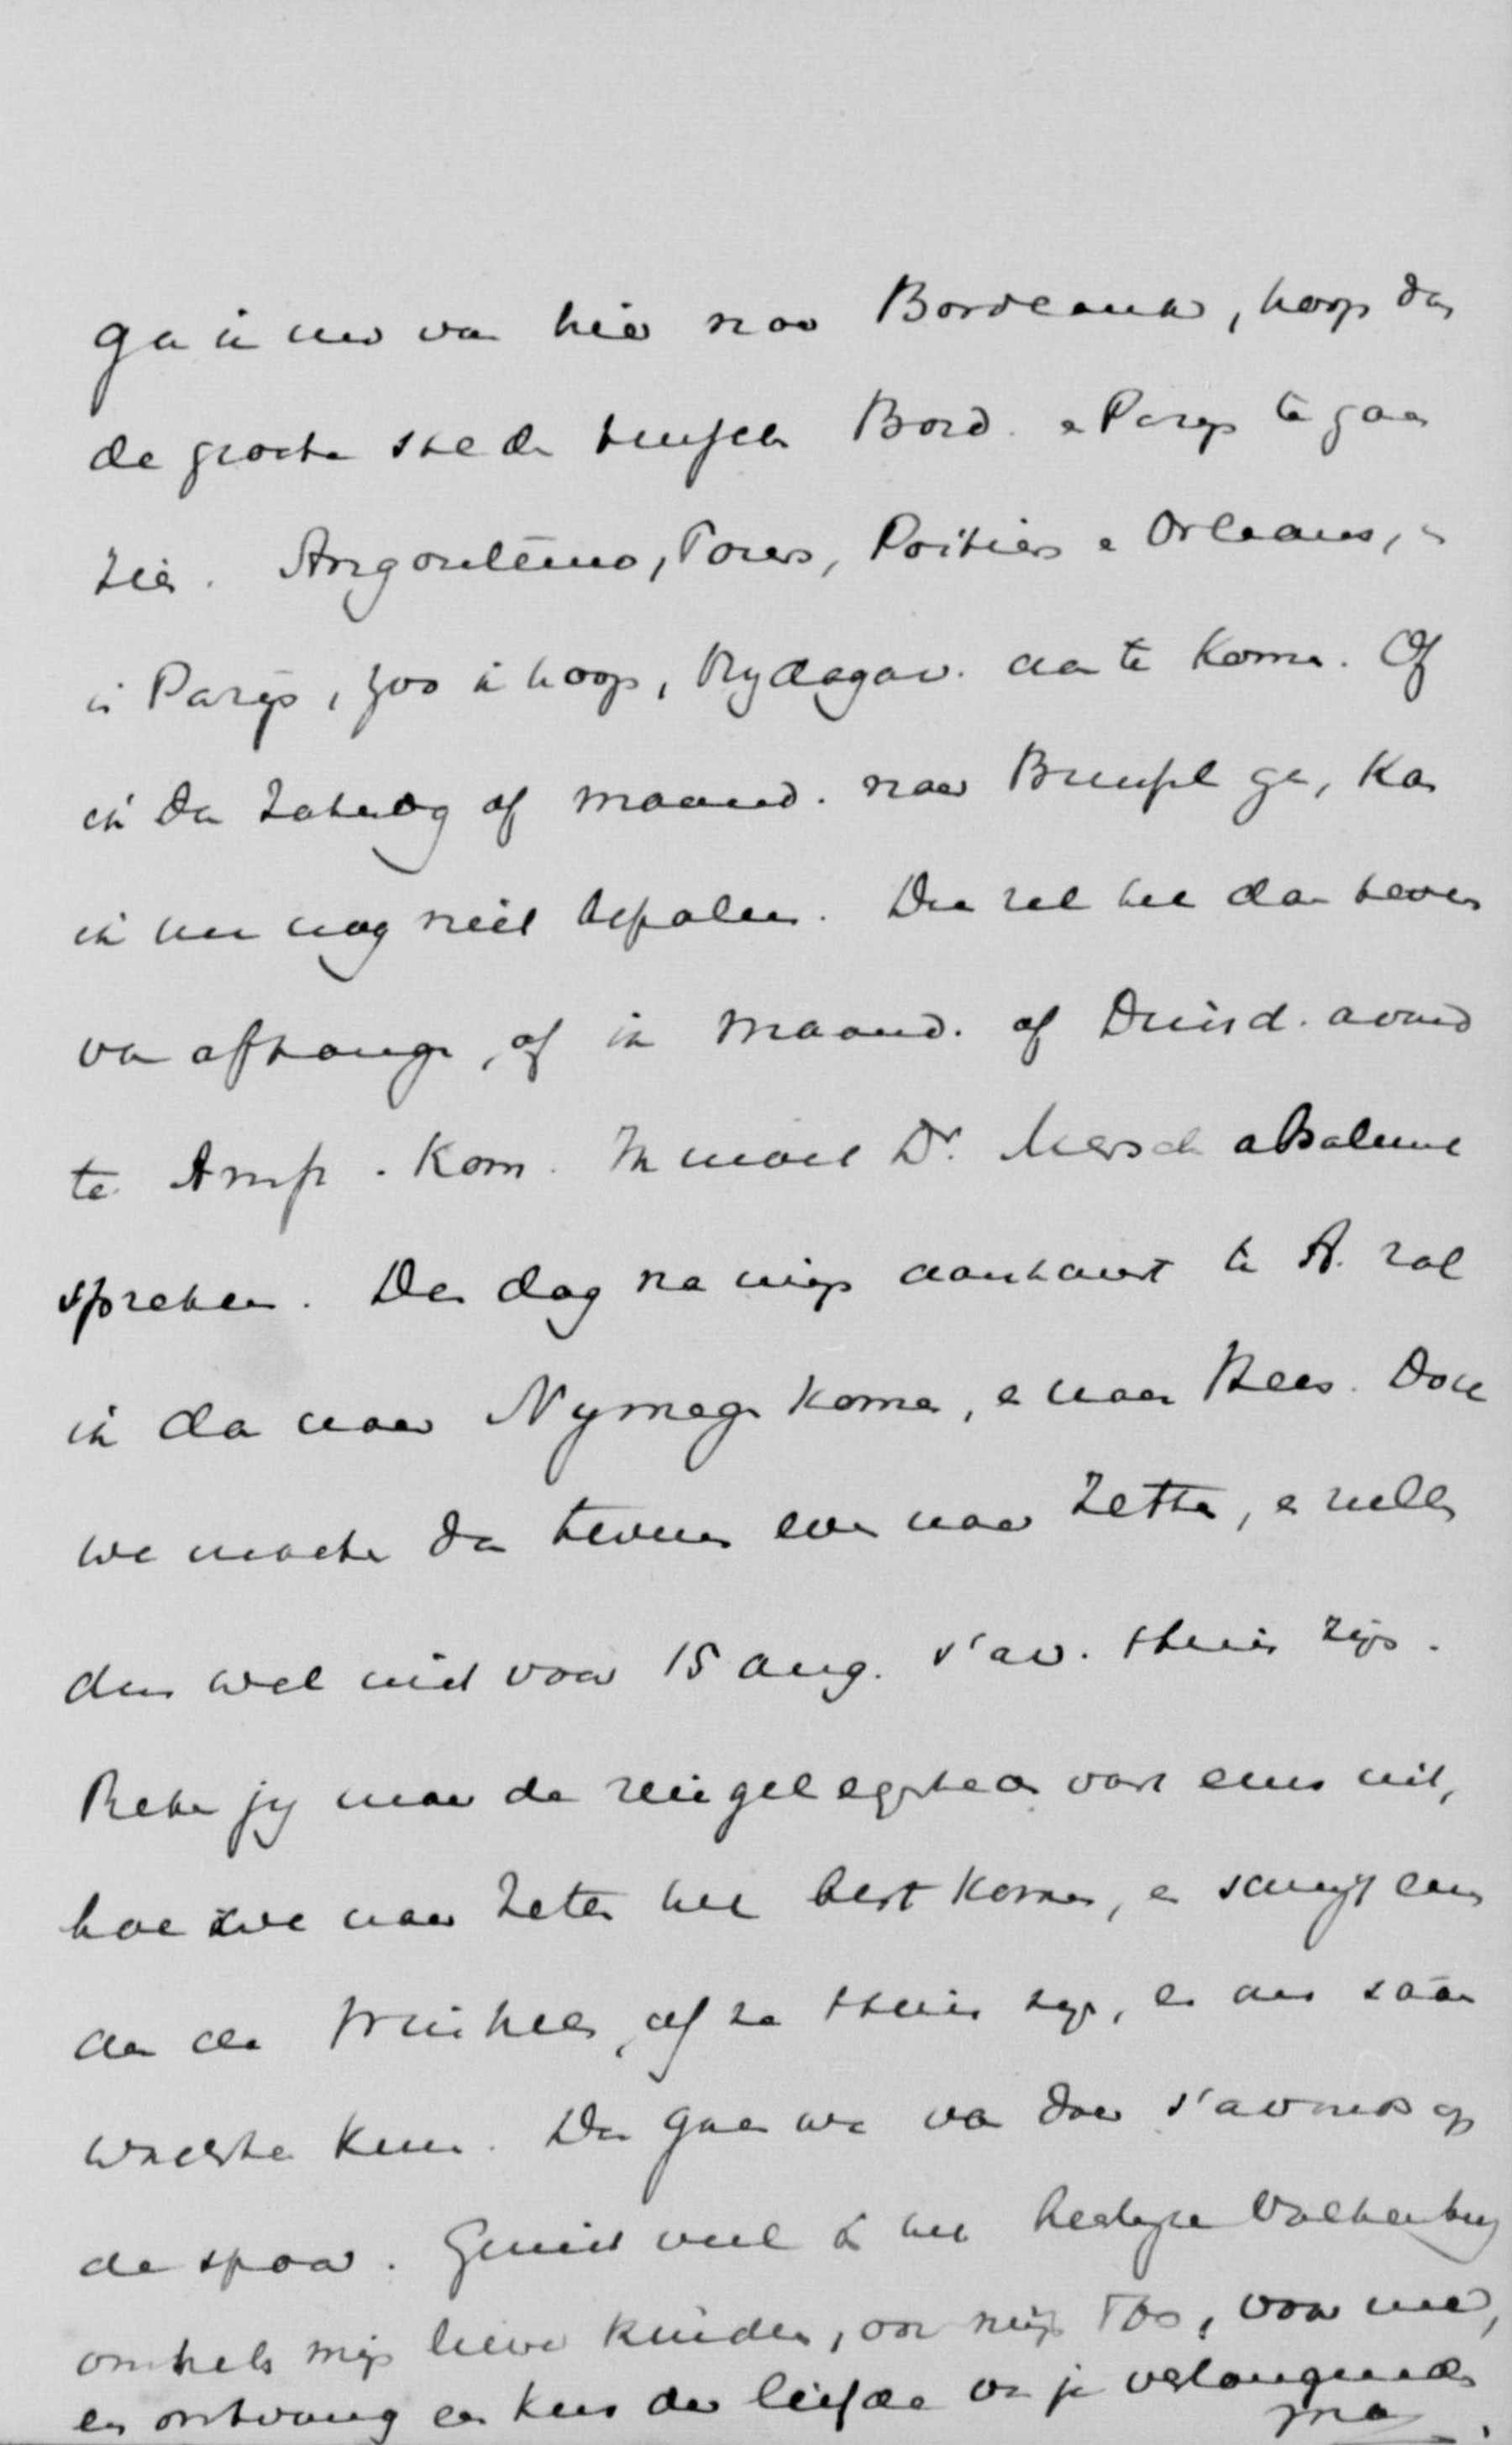 ga ik nu van hier naar Bordeaux, hoop dan
de groote steden tusschen Bord. en Parijs te gaan
zien. Angoulême, Tours, Poitiers en Orleans, en
in Parijs, zoo ik hoop, Vrydagav. aan te komen. Of
ik dan Zaterdag of maand. naar Brussel ga, kan
ik nu nog niet bepalen. Dan zal het dan tevens
van afhangen, of ik Maand. of Dinsd. avond
te Amst. kom. Ik moet Dr. Mersch absoluut
spreken. Den dag na mijn aankomst te A. zal
ik dan naar Nymegen komen, en naar Rees. Dan
we moeten dan tevens even naar Zetten, en zullen
dus wel niet voor 15 aug. s'av. thuis zijn.
Reken jy maar de reisgelegenheden vast eens uit,
hoe we naar Zetten het best komen, en schrijf eens
aan de, of ze thuis zijn, en ons dan
wachten kunnen. Dan gaan we van daar s'avonds op
de spoor. Geniet veel in het heerlijke Valkenburg
omhels mijn lieve kinderen, ook mijn, voor me,
en ontvang een kus der liefde van je verlangende
ma